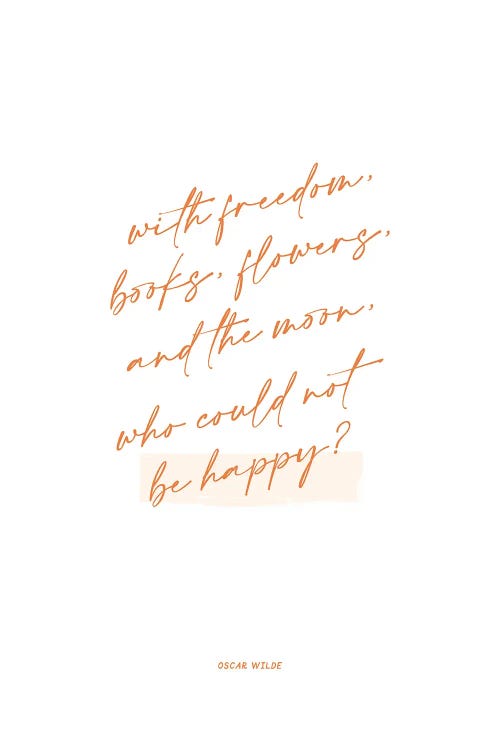 with freedom,
books, flowers,
and the moon,
who could not
be happy?
OSCAR WILDE